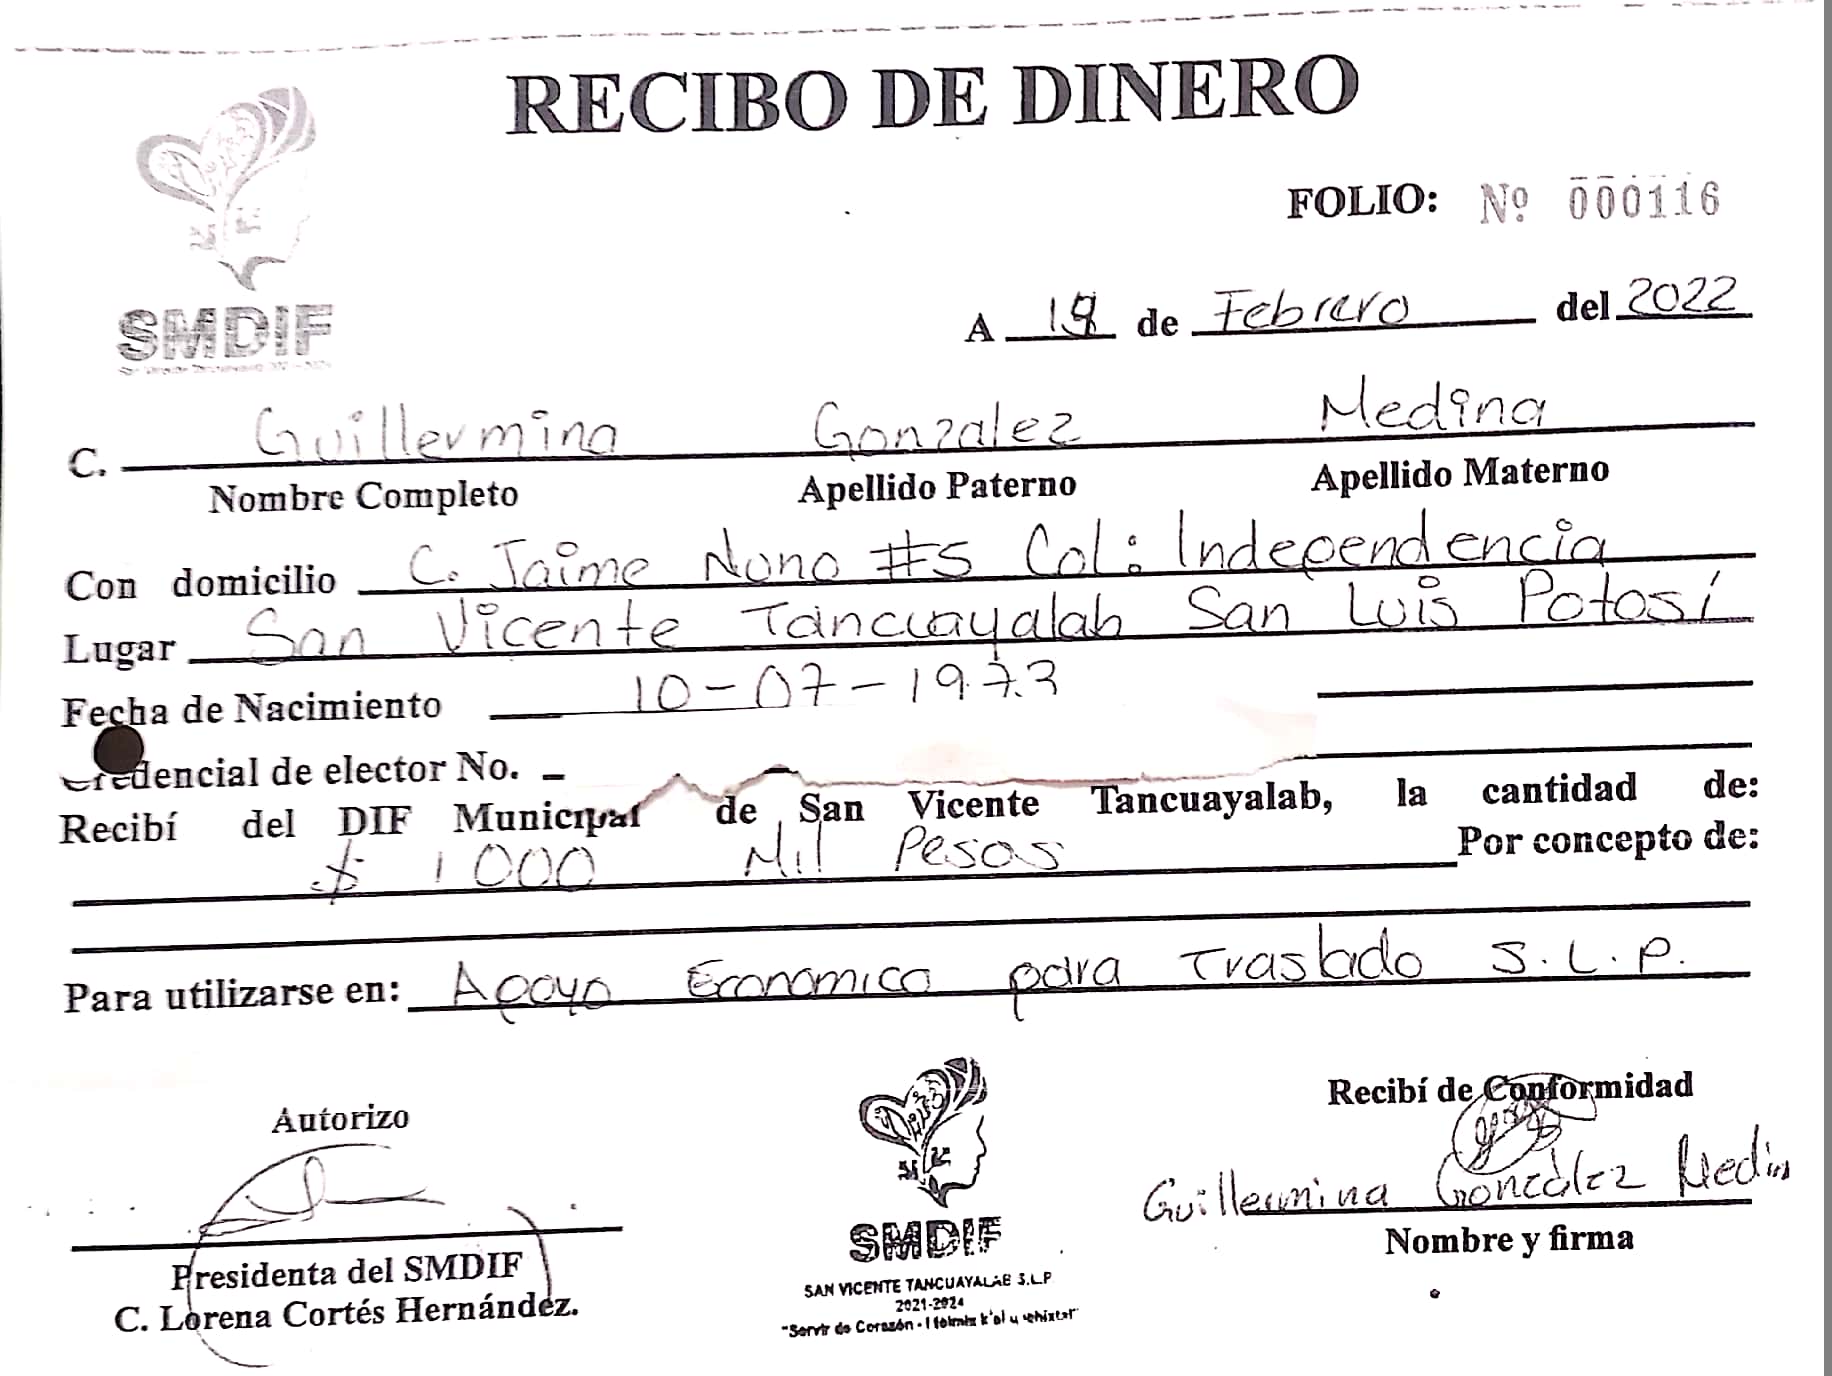 RECIBO DE DINERO
FOLIO: Nº 000116
SMDIF
A de Febrero del 2022
C. Guillermina Gonzalez Medina
Nombre Completo Apellido Paterno Apellido Materno
Con domicilio C. Jaime Nuno #5 Col: Independencia
Lugar San Vicente Tancuayalab San Luis Potosí
Fecha de Nacimiento 10-07-1973
Credencial de elector No.
Recibí del DIF Municipal de San Vicente Tancuayalab, la cantidad de:
$ 1000 Mil Pesos Por concepto de:
Para utilizarse en: Apoyo Economico para Traslado S.L.P.
Autorizo
Recibí de Conformidad
Guillermina González Medin
Nombre y firma
Presidenta del SMDIF
C. Lorena Cortés Hernández.
SMDIF
SAN VICENTE TANCUAYALAB S.L.P
2021-2024
"Servir de Corazón -